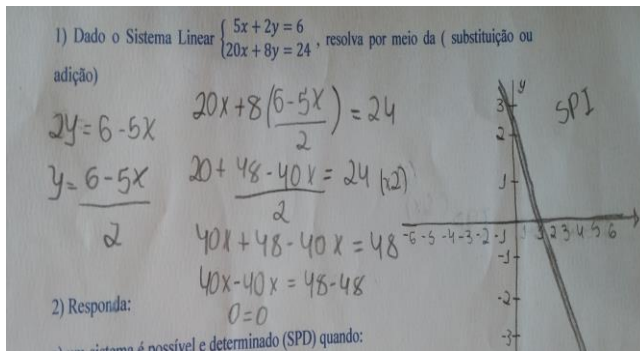 1) Dado o Sistema Linear { 5x + 2y = 6 20x + 8y = 24 , resolva por meio da ( substituição ou
adição)
2y = 6 - 5x
y = 6 - 5x / 2
20x + 8 ( 6 - 5x / 2 ) = 24
20 + 48 - 40x / 2 = 24 (x2)
40x + 48 - 40x = 48
40x - 40x = 48 - 48
0 = 0
y
SPI
3
2
1
-6 -5 -4 -3 -2 -1 1 2 3 4 5 6
-1
-2
-3
2) Responda:
sistema é possível e determinado (SPD) quando: